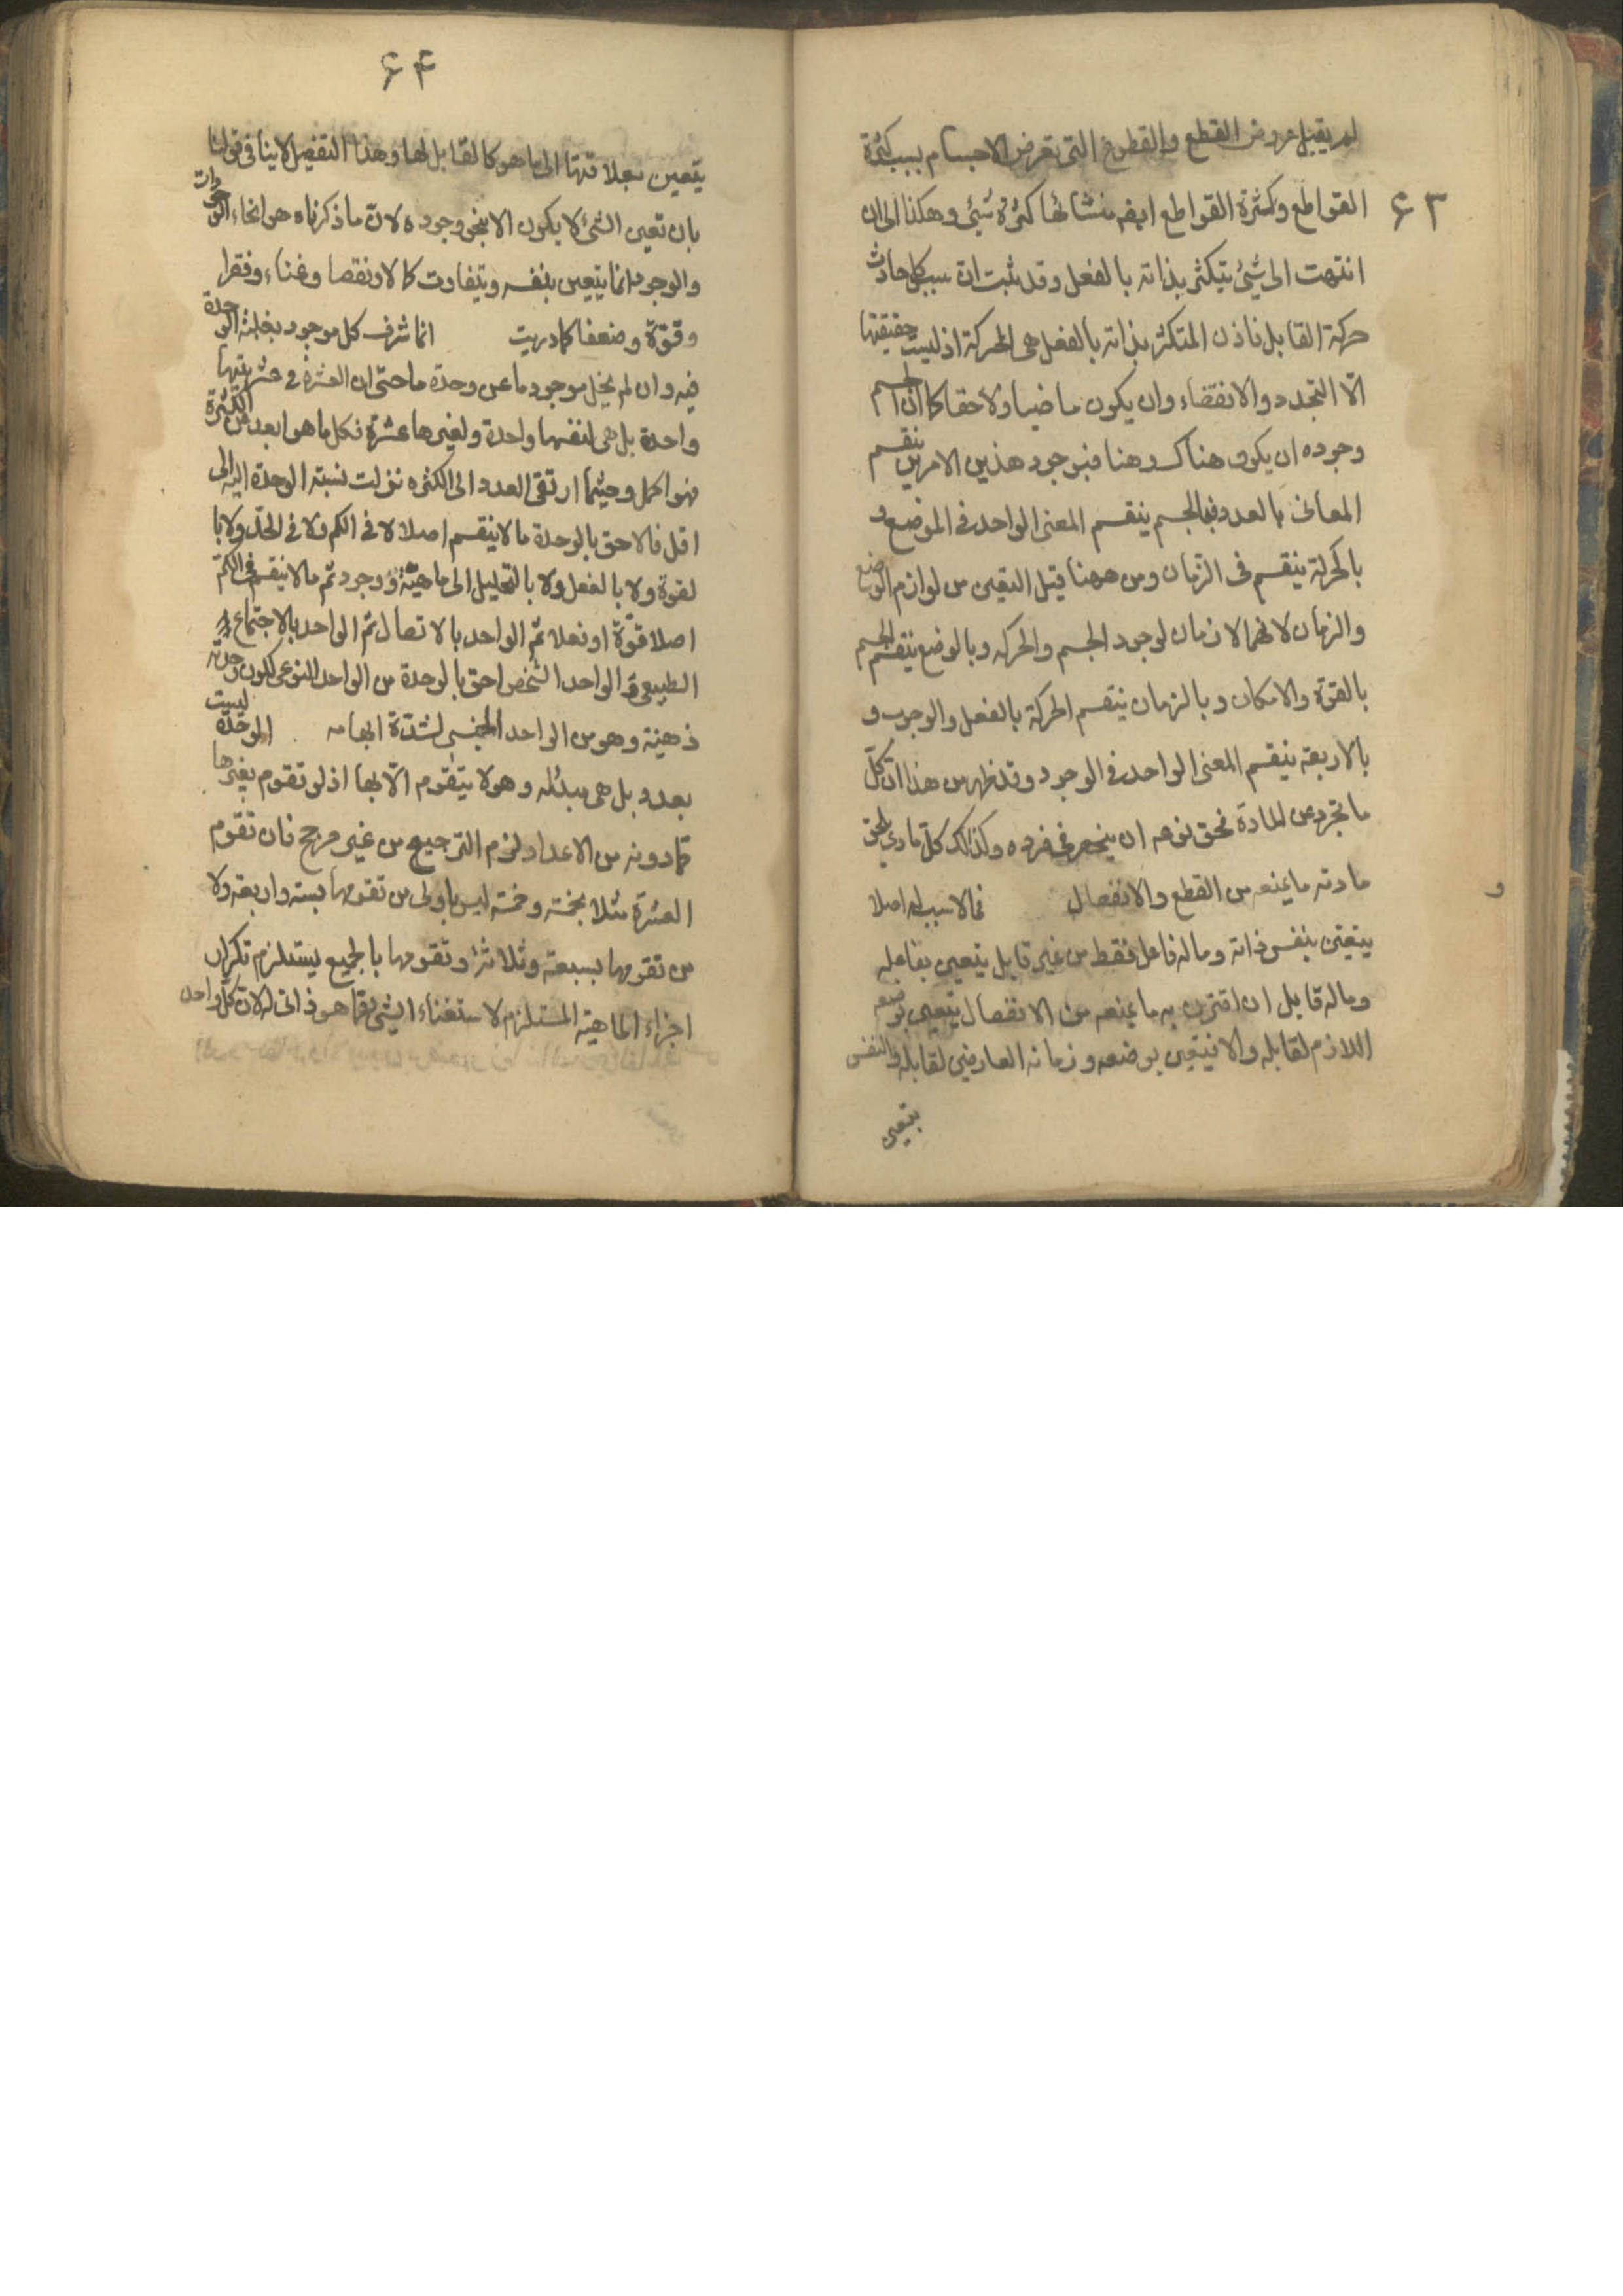 ۶۳
لم يقبل عروض القطع والقطوع التى تعرض الاجسام بسبب كثرة
القواطع وكثرة القواطع ايضه منشائها كثرة شيئ وهكذا الى ان
انتهت الى شيئ يتكثر بذاته بالفعل وقد ثبت ان سبب كل حادث
حركة القابل فاذن المتكثر بذاته بالفعل هى الحركة اذ ليست حقيقتها
الّا التجدد والانقضاء وان يكون ماضيا ولاحقا كما ان الجسم
وجوده ان يكون هناك وهنا فبوجود هذين الامرين ينقسم
المعانى بالعدد فبالجسم ينقسم المعنى الواحد فى الموضع و
بالحركة ينقسم فى الزمان ومن ههنا قيل التعين من لوازم الوضع
والزمان لانهما لازمان لوجود الجسم والحركه وبالوضع ينقسم الجسم
بالقوة والامكان وبالزمان ينقسم الحركة بالفعل والوجوب و
بالاربعة ينقسم المعنى الواحد فى الوجود وقد ظهر من هذا ان كلّ
ما تجرد عن المادة فحق نوعه ان ينحصر فى فرده وكذلك كلّ مادي يلحق
مادته ما يمنعه من القطع والانفصال فما لا سبب له اصلا
يتعين بنفس ذاته وما له فاعل فقط من غير قابل يتعين بفاعله
وما له قابل ان اقترن به ما يمنعه من الانفصال يتعين بوضعه
اللازم لقابله والا فيتعين بوضعه و زمانه العارضين لقابله والنفس
يتعين
و
۶۴
يتعين بعلاقتها الى ما هو كالقابل لها وهذا التفصيل لا ينافى قولنا
بان تعين الشئ لا يكون الا بنحو وجوده لان ما ذكرناه هو انحاء الوجودات
والوجود انما يتعين بنفسه ويتفاوت كمالا ونقصا وغناء وفقرا
وقوّة وضعفا كما دريت انما شرف كل موجود بغلبة الوحدة
فيه وان لم يخل موجود ما عن وحدة ما حتى ان العشرة فى عشريتها
واحدة بل هى لنفسها واحدة ولغيرها عشرة فكل ما هو ابعد من الكثرة
فهو اكمل وحيثما ارتقى العدد الى الكثره نزلت نسبة الوحدة اليه الى
اقل فالاحق بالوحدة ما لا ينقسم اصلا لا فى الكم ولا فى الحدّ ولا با
لقوة ولا بالفعل ولا بالتحليل الى ماهيّة ووجود ثم ما لا ينقسم فى الكمّ
اصلا قوّة او فعلا ثمّ الواحد بالاتصال ثمّ الواحد بالاجتماع
الطبيعى والواحد الشخصى احق بالوحدة من الواحد النوعى لكون وحدته
ذهنية وهو من الواحد الجنسى لشدّة ابهامه الوحدة ليست
بعدد بل هى مبدئه وهو لا يتقوم الّا بها اذ لو تقوم بغيرها
ممّا دونه من الاعداد لزم الترجيح من غير مرجح فان تقوم
العشرة مثلا بخمسة وخمسة ليس باولى من تقومها بستة واربعة ولا
من تقومها بسبعة وثلاثة و تقومها بالجميع يستلزم تكرار
اجزاء الماهية المستلزم لاستغناء الشئ عما هو ذاتى له لان كلّ واحد